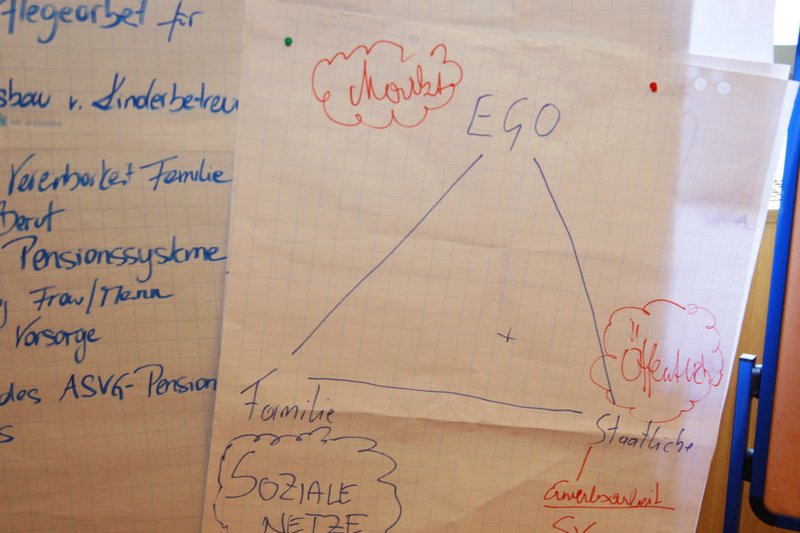 Pflegearbeit für
sbau v. Kinderbetreu
Vereinbarkeit Familie
Beruf
Pensionssysteme
g Frau/Mann
Vorsorge
des ASVG-Pension
s
Markt
EGO
Öffentlich
Familie
Staatliche
SOZIALE
NETZE
Erwerbsarbeit
SV